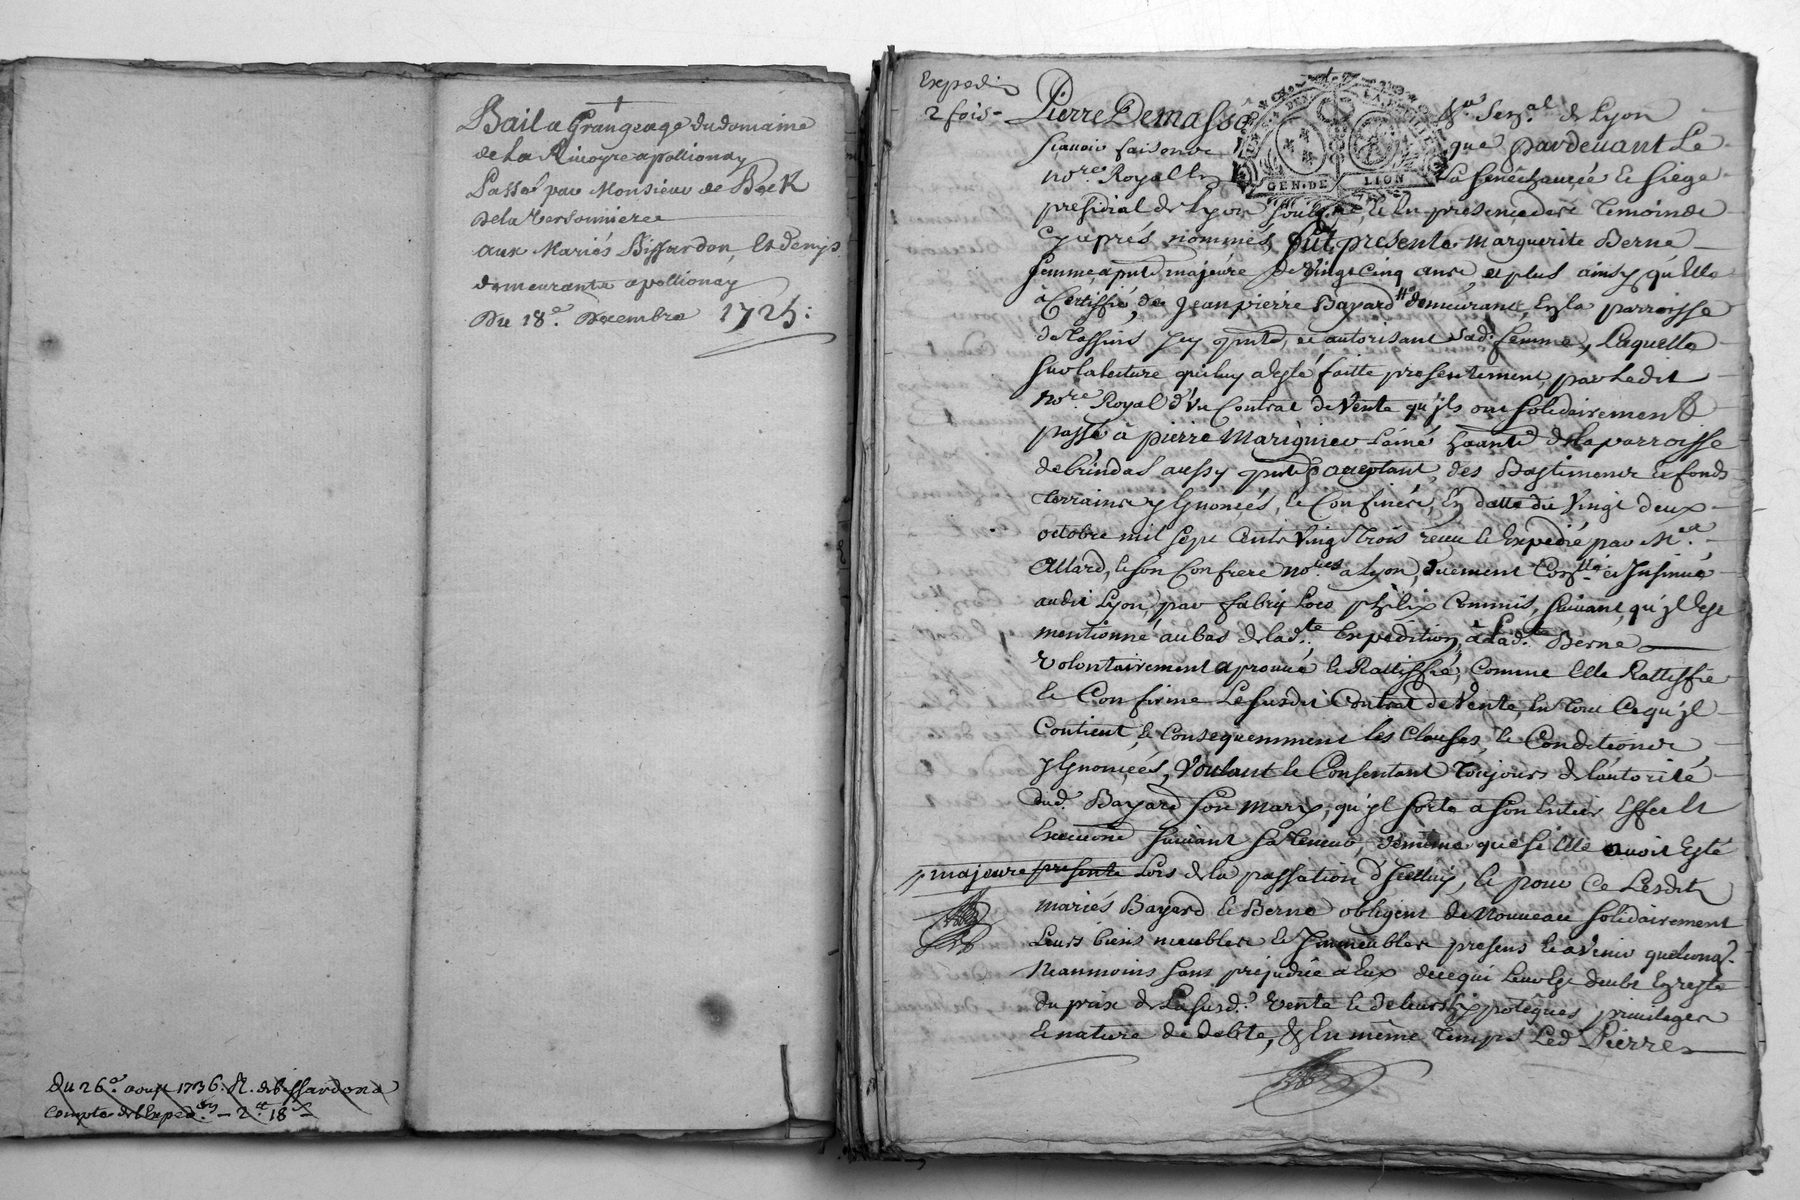 Bail a Grangeage du domaine
de La Riuoyre a pollionay
Passé par Monsieur de
De la Versonniere
aux Mariés Bissardon, Et denis
demeurants a pollionay
Du 18e. Decembre 1725:
Du 26e. aoust 1736. R. de bissardon a
compte de l'Exped.on - 2tt 18s
Expedié
2 fois-
Pierre Demasso Sen.al de Lyon
sçauoir faisons que pardeuant Le
no.re Royal En La seneschaucée Et Siege
GEN. DE LION
presidial de Lyon soub.né, Et En presence des Temoins
cy aprés nommés, fut presente Marguerite Berne
femme, a pnt majeure de vingt cinq ans et plus ainsy qu'Elle
à Certiffié, de Jean pierre Bayard demeurant, En la parroisse
de Tassins Icy pnt, et autorisant Sad. femme, Laquelle
sur la lecture qui luy a Esté faitte presentement, par Ledit
No.re Royal d'vn Contrat de Vente qu'ils ont solidairement
passé à pierre Marignier L'ainé de la parroisse
de brindas aussy pnt acceptant, des Bastiments Et fonds
terrains y Enoncés, Et Confinés, En datte du Vingt deux
octobre mil sept cents vingt trois receu Et Expedié par Me.
Allard, Et son Confrere no.res a Lyon, duement Con.llé et Insinué
audit Lyon, par fabry Commis, suiuant qu'jl Est
mentionné au bas de lad.te Expedition, à Lad.te Berne
volontairement aprouué Et Rattiffié, Comme Elle Rattiffie
Et Confirme Le susdit Contrat de Vente, En Tout Ce qu'jl
Contient, Et Consequemment les Clauses, Et Conditions
y Enoncées, Voulant Et Consentant Toujours de l'autorité
dud. Bayard son mary, qu'jl sorte a son Entier Effet Et
Execution suiuant sa Teneur, de même que si Elle auoit Esté
majeure presente Lors de la passation d'Icelluy, Et pour Ce Lesdits
mariés Bayard Et Berne obligent de Nouueau solidairement
Leurs biens meubles Et Immeubles presens Et a venir quelconq.
Neanmoins sans prejudice a Eux de ce qui Leur Est deubt En reste
du prix de La susd. vente Et de leurs hypoteques priuileges
Et nature de debte, & En même Temps Led. Pierre